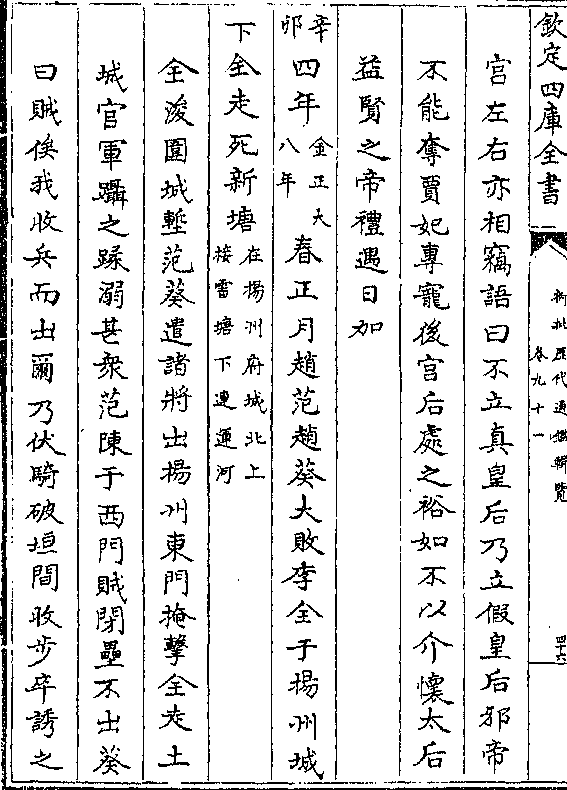 欽定四庫全書
御批歷代通鑑輯覽
卷九十一
四十六
宮左右亦相竊語曰不立真皇后乃立假皇后邪帝
不能奪賈妃專寵後宮后處之裕如不以介懷太后
益賢之帝禮遇日加
辛卯四年
金正大八年
春正月趙范趙葵大敗李全于揚州城
下全走死新塘
在揚州府城北上
接雷塘下連運河
全浚圍城塹范葵遣諸將出揚州東門掩擊全走土
城官軍躡之蹂溺甚衆范陳于西門賊閉壘不出葵
曰賊俟我收兵而出爾乃伏騎破垣間收步卒誘之